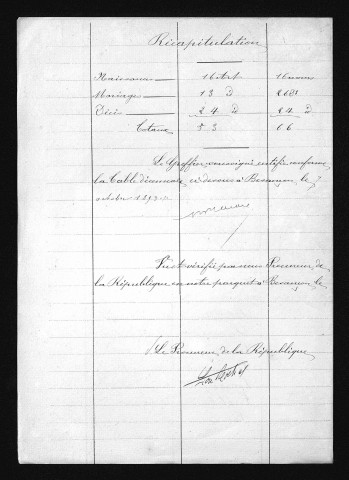 Récapitulation
Naissances 16 act. 16 noms
Mariages 13 d
Décès 24 d 24 d
Totaux 53 66
Le Greffier soussigné certifie conforme
la Table décennale ci-dessus à Besançon, le 7
octobre 1893
Vu et vérifié par nous Procureur de
la République en notre parquet à Besançon, le
Le Procureur de la République